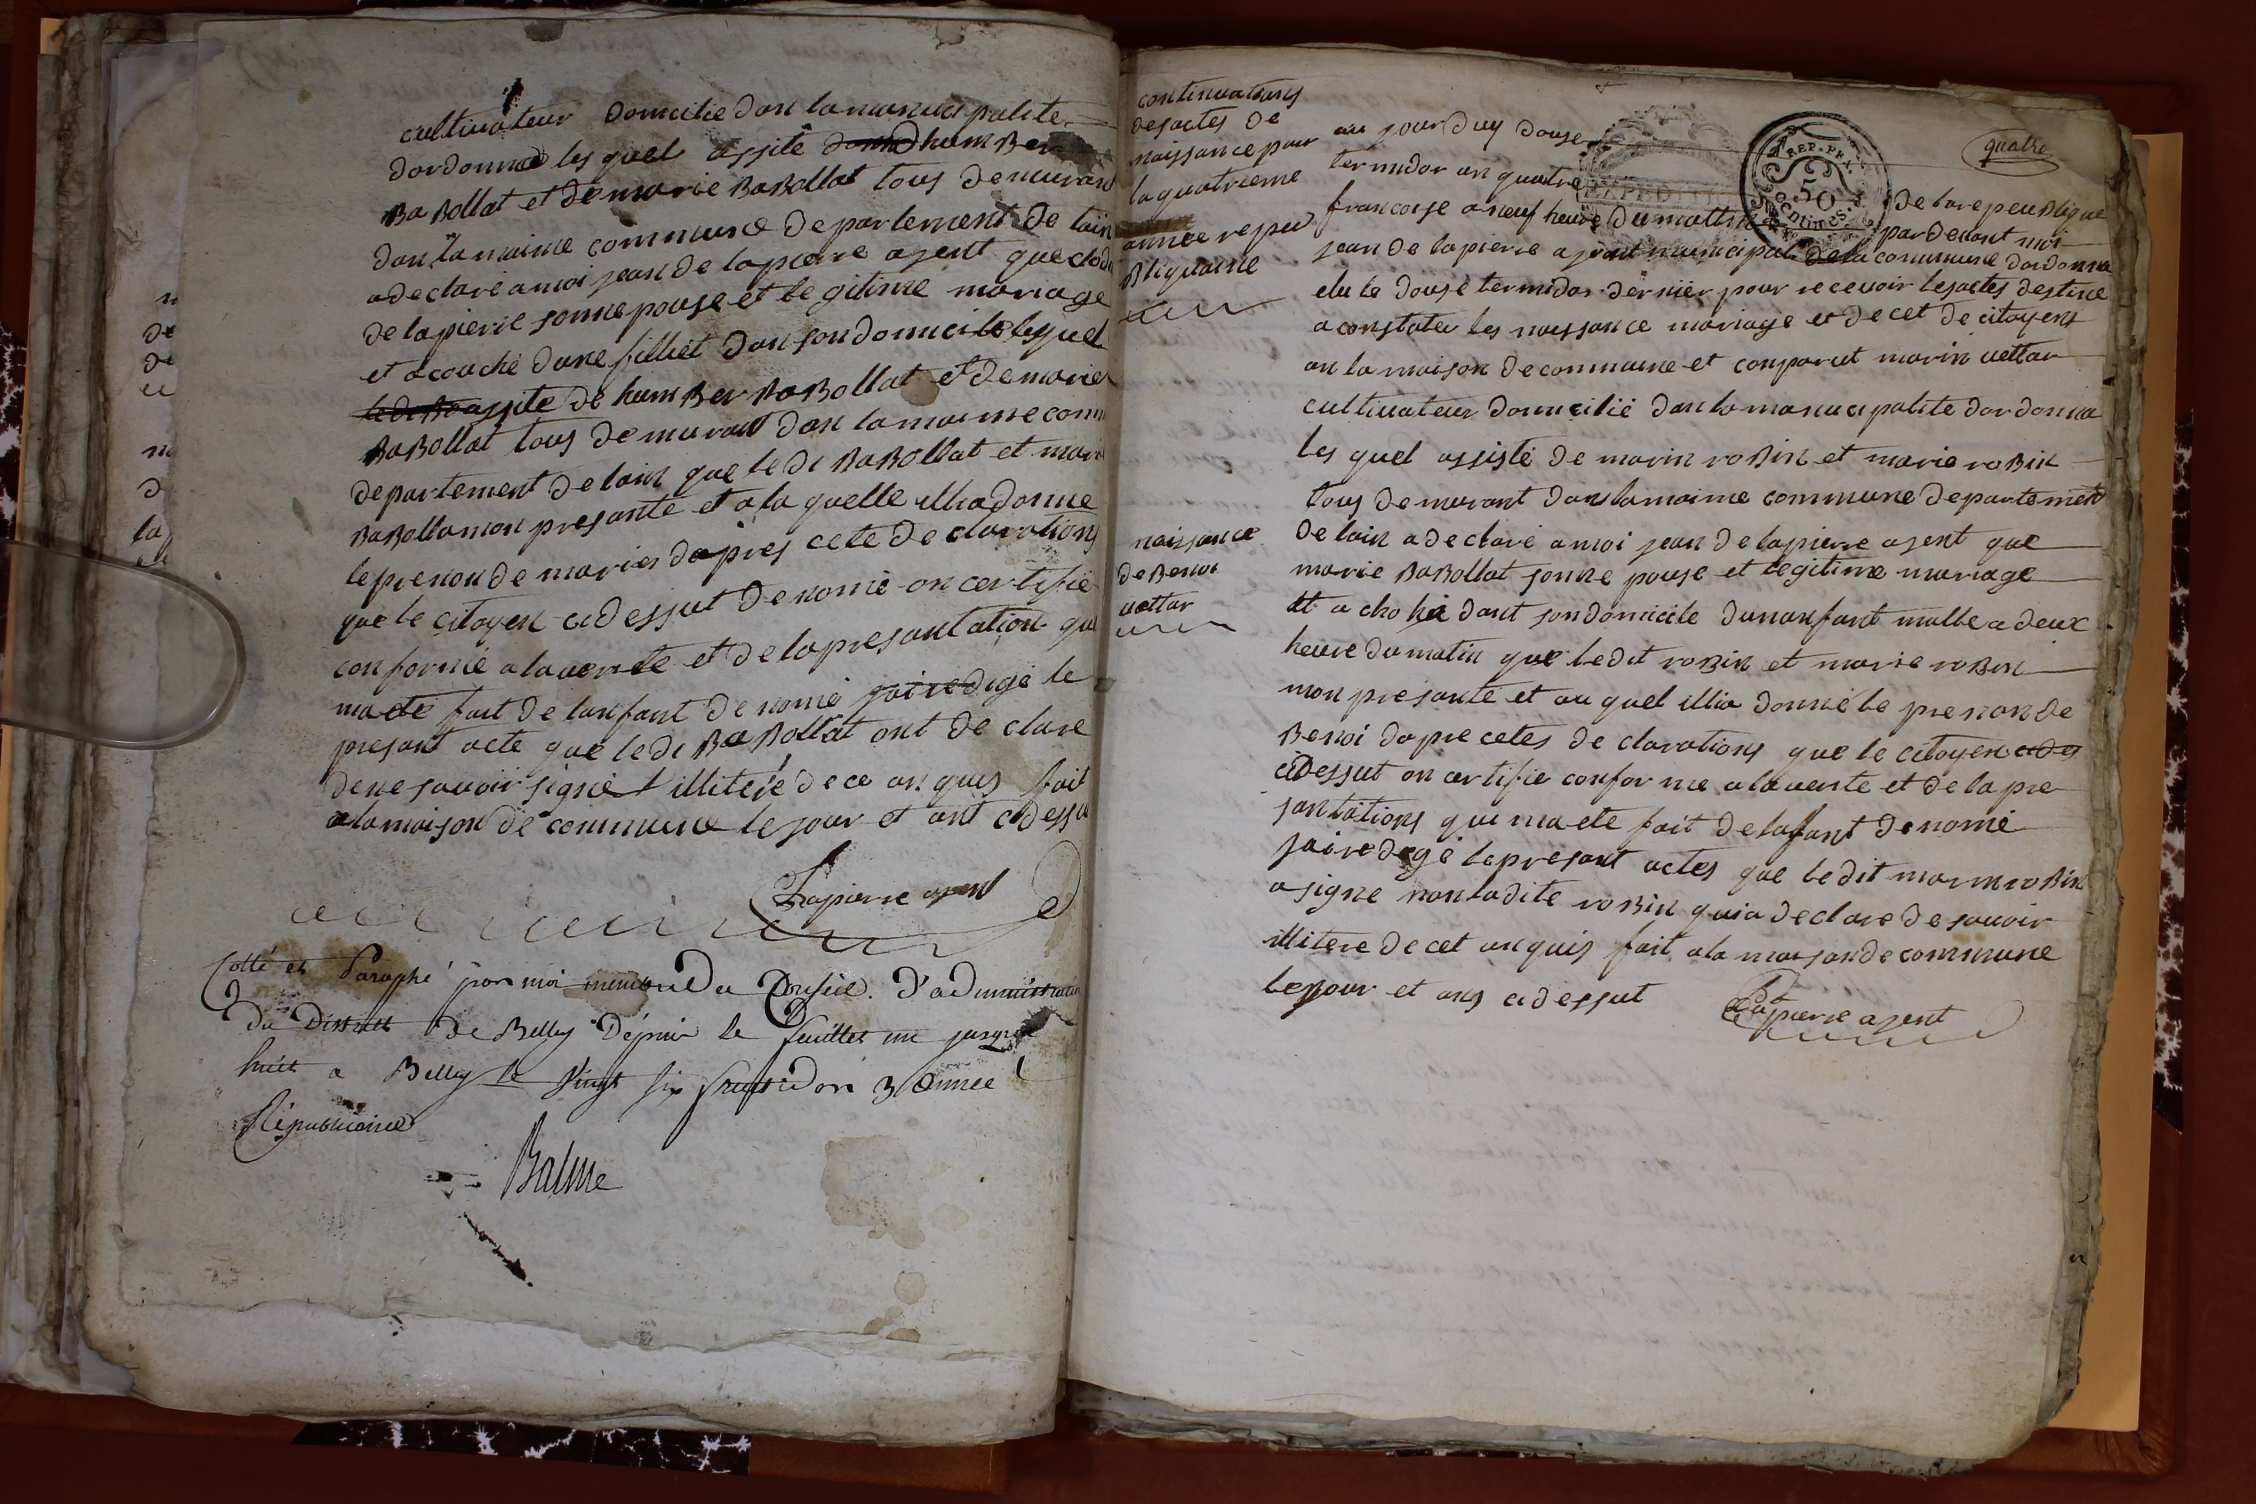 cultivateur domcilie dan la manuci palite
dordonnad les quel assite humBer
BaBollat et de marie BaBollat tous demuran
dan la maime commune departement de lain
a declaré a moi jean de lapierre agent que clod
de lapierre sonne pouse et legitime mariage
et acouché dune filliet dan son domicile lesquel
assite de humBer BaBollat et de marie
BaBollat tous demurant dan la maime com
departement de lain que le di BaBollat et mari
BaBolla mon presante et a la quelle illia donne
le prenon de maries dapres cete de clarations
que le citoyen cidessut denomé on certifié
conforme a la verite et de la presantation qui
ma ete fait de lanfant denomé jai redigé le
presant acte que le di BaBollat ont de clare
de ne savoir signé illiteré de ce an quis fait
a la maison de commune le jour et ant cidessu
Lapierre agent
Cotté et Paraphé par moi membre du Conseil d'administration
du District de Belley Depuis le feuillet un jusqu'a
huit a Belley le vingt six fructidor 3 Année
Républicaine
Balme
continuations
desactes de
naissance pour
la quatrieme
année repeu
Bliquaine
naissance
de Benoi
vettar
quatre
REP. FRA.
50
centimes.
au jourduy douse
termidor an quatre de la repeuBlique
francoise a neuf heure du mattin par devant moi
jean de lapierre agent municipal de la commune dordonna
elu le douse termidor dernier pour recevoir lesactes destine
a constater les naissance mariage et decet de citoyens
an la maison de commune et comparut marin vettar
cultivateur domicilié dan la manuci palite dordonna
les quel assisté de marin roBin et marie roBin
tous demurant dans la maime commune departement
de lain a declaré a moi jean de lapierre agent que
marie BaBollat sonne pouse et legitime mariage
et a cho hé dant son domicile dunanfant malle a deux
heure du matin que ledit roBin et marie roBin
mon presanté et au quel illia donné le prenon de
Benoi dapre cetes de clarations que le citoyen
cidessut on certifie conforme a la verite et de la pre
santations qui ma ete fait de lafant denomé
jai redegé le presant actes que ledit marin roBin
a signe non ladite roBin quia declare de savoir
illitere de cet an quis fait a la maison de commune
le jour et ans cidessut
Lapierre agent